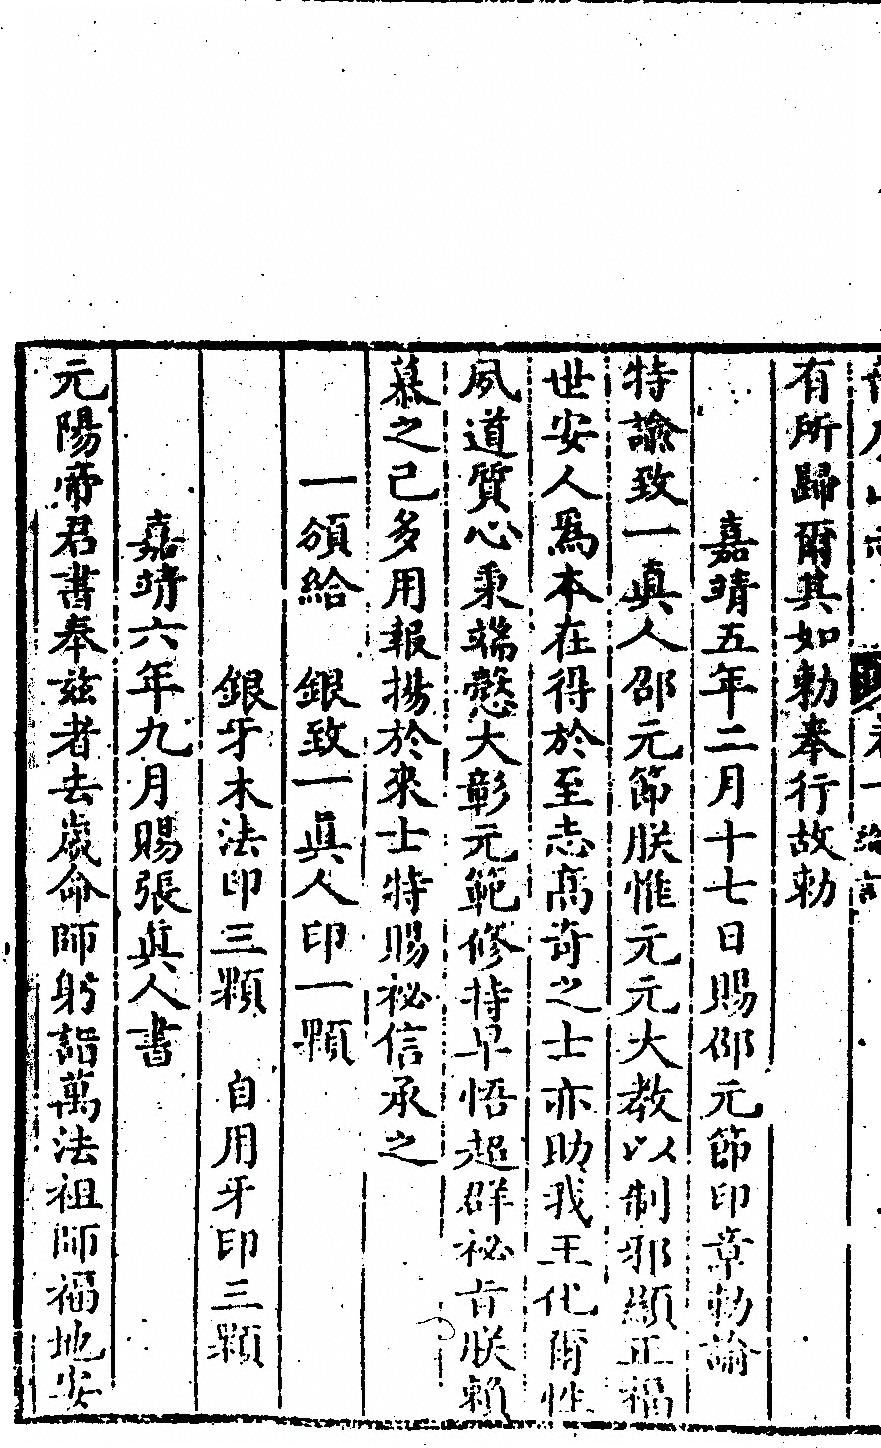 有所歸爾其如勅奉行故勅
嘉靖五年二月十七日賜邵元節印章勅諭
特諭致一真人邵元節朕惟元元大教以制邪顯正福
世安人爲本在得於至志高奇之士亦助我王代爾性
夙道質心秉端慤大彰元範修持早悟超群祕旨朕賴
慕之己多用報揚於來士特賜祕信承之
一頒給　銀致一眞人印一顆
銀牙木法印三顆　自用牙印三顆
嘉靖六年九月賜張眞人書
元陽帝君書奉玆者去歲命師躬詣萬法祖師福地安